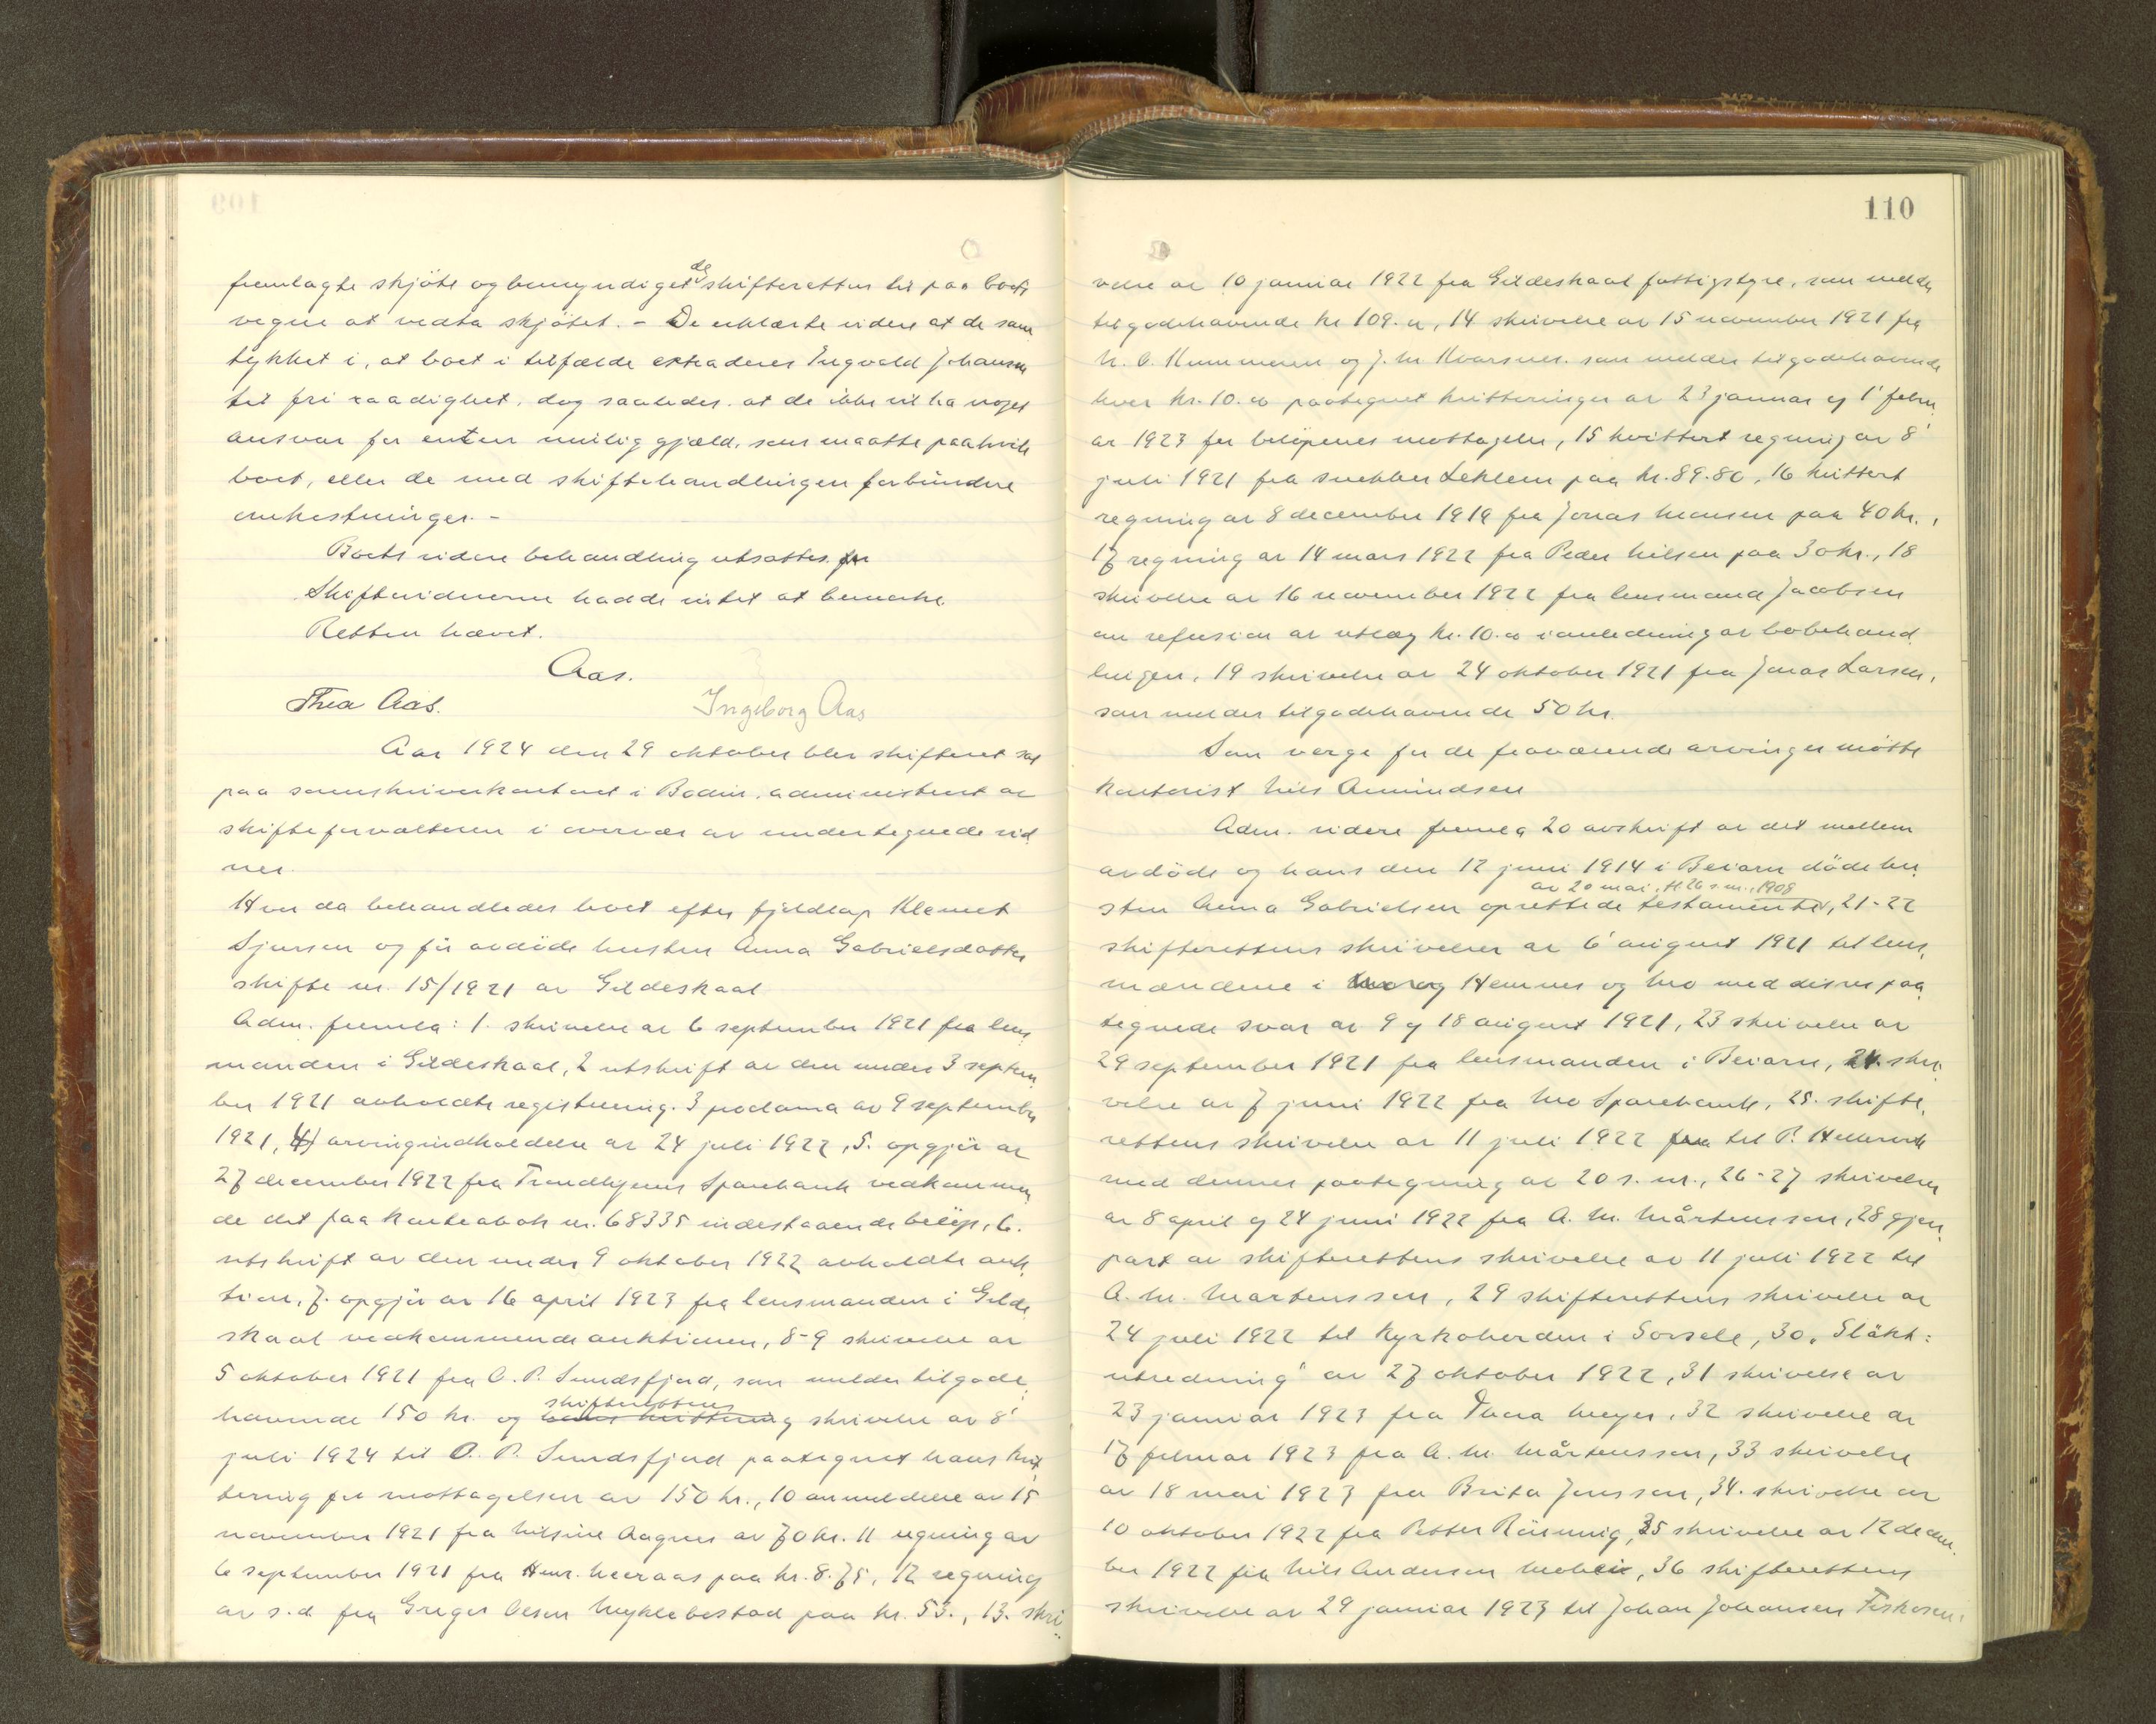 110
fremlagte skjöte og bemyndiget de skifteretten til paa boets
vegne at vedta skjötet. - De erklærte videre at de sam
tykket i, at boet i tilfælde extraderes Ingvald Johansen
til fri raadighet, dog saaledes at de ikke vil ha noget
ansvar for enten mulig gjæld, som maatte paahvile
boet, eller de med skiftebehandlingen forbundne
omkostninger. -
Boets videre behandling utsattes.
Skiftevidnerne hadde intet at bemerke.
Retten hævet.
Aas.
Thea Aas. Ingeborg Aas
Aar 1924 den 29 oktober blev skifteret sat
paa sorenskriverkontoret i Bodin, administrert av
skifteforvalteren i overvær av undertegnede vid
ner.
Hvor da behandledes boet efter fjeldlap Klemet
Sjursen og før avdöde hustru Anna Gabrielsdatter
skifte nr. 15/1921 av Gildeskaal
Adm. fremla: 1. skrivelse av 6 september 1921 fra lens
manden i Gildeskaal, 2 utskrift av den under 3 septem
ber 1921 avholdte registrering. 3 proclama av 9 september
1921, 4) arvingindkaldelse av 24 juli 1922, 5. opgjör av
27 december 1922 fra Trondhjems Sparebank vedkommen
de det paa kontrabok nr. 68335 indestaaende belöp, 6.
utskrift av den under 9 oktober 1922 avholdte auk
tion, 7. opgjör av 16 april 1923 fra lensmanden i Gilde
skaal vedkommende auktionen, 8-9 skrivelse av
5 oktober 1921 fra O. P. Sundsfjord, som melder tilgode
havende 150 kr. og skifterettens skrivelse av 8'
juli 1924 til O. P. Sundsfjord paategnet hans kvit
tering for mottagelsen av 150 kr., 10 anmeldelse av 15
november 1921 fra Nilsine Aagnes av 70 kr. 11 regning av
6 september 1921 fra Henr. Meeraas paa kr. 8.75, 12 regning
av s.d. fra Greger Olsen Myklebostad paa kr. 53., 13. skri
velse av 10 januar 1922 fra Gildeskaal fattigstyre, som melder
tilgodehavende kr 109.  , 14 skrivelse av 15 november 1921 fra
og J. M. Kvarsnes. som melder tilgodehavende
hver kr. 10.00 paategnet kvitteringer av 23 januar og 1' febru
ar 1923 for belöpenes mottagelse, 15 kvittert regning av 8'
juli 1921 fra snekker Leklem paa kr. 89.80, 16 kvittert
regning av 8 december 1919 fra Jonas Monsen paa 40 kr.,
17 regning av 14 mars 1922 fra Peder Nilsen paa 30 kr., 18
skrivelse av 16 november 1922 fra lensmand Jacobsen
om refusion av utlæg kr. 10.00 i anledning av bobehand
lingen, 19 skrivelse av 24 oktober 1921 fra Jonas Larsen,
som melder tilgodehavende 50 kr.
Som verge for de fraværende arvinger mötte
kontorist Nils Amundsen
Adm. videre fremla 20 avskrift av det mellem
avdöde og hans den 12 juni 1914 i Beiarn döde hu
av 20 mai, tl. 26 s.m., 1908
stru Anna Gabrielsen oprettede testamente, 21-22
skifterettens skrivelser av 6' august 1921 til lens,
mændene i Hemnes og Mo med disses paa
tegnede svar av 9 og 18 august 1921, 23 skrivelse av
29 september 1921 fra lensmanden i Beiarn, 24. skri
velse av 7 juni 1922 fra Mo Sparebank, 25. skifte
rettens skrivelse av 11 juli 1922 til P.
med dennes paategning av 20 s. m., 26-27 skrivelser
av 8 april og 24 juni 1922 fra A. M. Mårtensson, 28 gjen
part av skifterettens skrivelse av 11 juli 1922 til
A. M. Martensson, 29 skifterettens skrivelse av
24 juli 1922 til Kyrkoherden i Sorsele, 30 „Släkt:
utredning" av 27 oktober 1922, 31 skrivelse av
23 januar 1923 fra Thora Meyer, 32 skrivelse av
17 februar 1923 fra A. M. Mårtensson, 33 skrivelse
av 18 mai 1923 fra Brita Jonsson, 34. skrivelse av
10 oktober 1922 fra Petter Rönning, 35 skrivelse av 12 decem
ber 1922 fra Nils Andersen, 36 skifterettens
skrivelse av 29 januar 1923 til Johan Johansen Fiskosen,